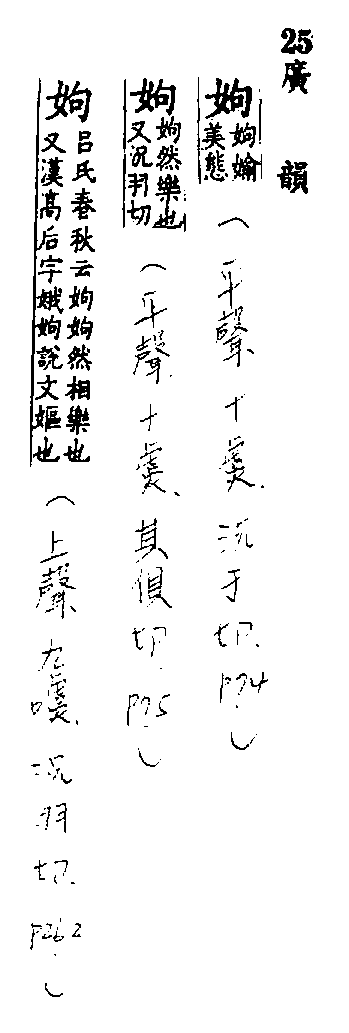 25廣韻
姁姁媮美態（平聲、十虞、況于切、P74）
姁姁然樂也又況羽切（平聲、十虞、其俱切、P75）
姁呂氏春秋云姁姁然相樂也又漢高后字娥姁說文嫗也（上聲、九麌、況羽切、P262）